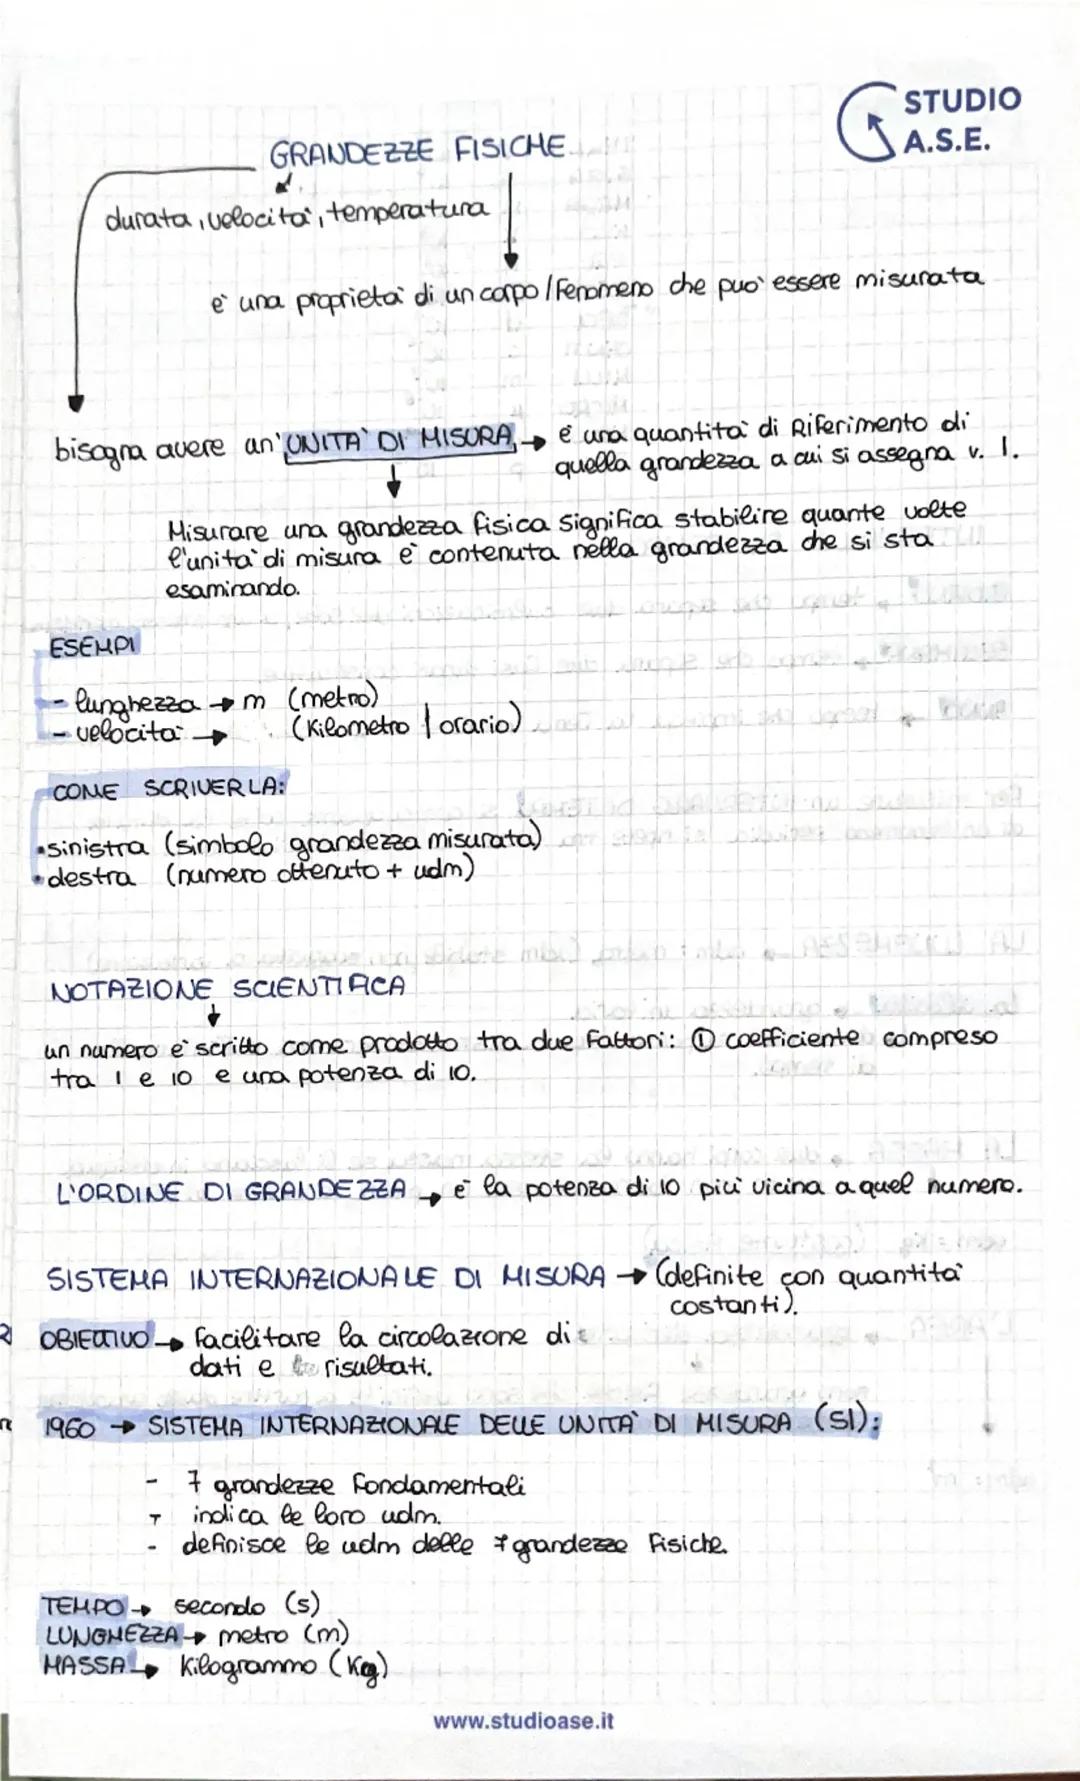 STUDIO
A.S.E.
GRANDEZZE FISICHE
durata, velocità, temperatura
è una proprietà di un corpo/fenomeno che può essere misurata
bisogna avere un'UNITÀ DI MISURA → è una quantità di Riferimento di
quella grandezza a cui si assegna v. 1.
Misurare una grandezza fisica significa stabilire quante volte
l'unità di misura è contenuta nella grandezza che si sta
esaminando.
ESEMPI
- lunghezza → m (metro)
- velocità → (Kilometro / orario)
COME SCRIVERLA:
•sinistra (simbolo grandezza misurata)
•destra (numero ottenuto + udm)
NOTAZIONE SCIENTIFICA
un numero è scritto come prodotto tra due Fattori: ① coefficiente compreso
tra 1 e 10 e una potenza di 10.
L'ORDINE DI GRANDEZZA → è la potenza di 10 più vicina a quel numero.
SISTEMA INTERNAZIONALE DI MISURA → (definite con quantità
costanti).
OBIETTIVO → facilitare la circolazione di
dati e risultati.
1960 → SISTEMA INTERNAZIONALE DELLE UNITÀ DI MISURA (SI):
- 7 grandezze fondamentali
- indica le loro udm.
- definisce le udm delle 7 grandezze Fisiche.
TEMPO → secondo (s)
LUNGHEZZA → metro (m)
MASSA → Kilogrammo (Kg)
www.studioase.it